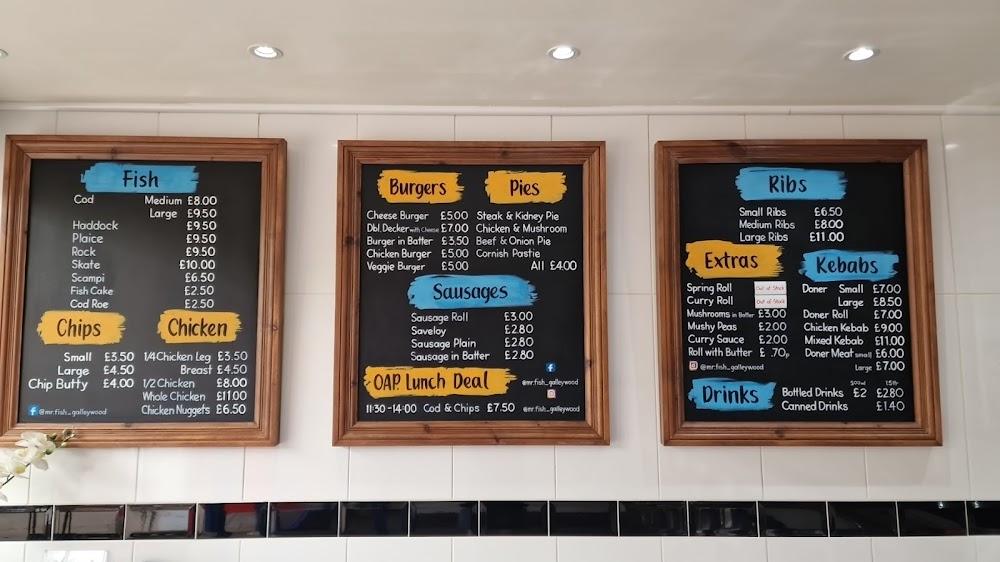 Fish
Cod Medium £8.00
Large £9.50
Haddock £9.50
Plaice £9.50
Rock £9.50
Skate £10.00
Scampi £6.50
Fish Cake £2.50
Cod Roe £2.50
Chips
Small £3.50
Large £4.50
Chip Butty £4.00
Chicken
1/4 Chicken Leg £3.50
Breast £4.50
1/2 Chicken £8.00
Whole Chicken £11.00
Chicken Nuggets £6.50
@mr.fish_galleywood
Burgers
Cheese Burger £5.00
Dbl. Decker with Cheese £7.00
Burger in Batter £3.50
Chicken Burger £5.00
Veggie Burger £5.00
Pies
Steak & Kidney Pie
Chicken & Mushroom
Beef & Onion Pie
Cornish Pastie
All £4.00
Sausages
Sausage Roll £3.00
Saveloy £2.80
Sausage Plain £2.80
Sausage in Batter £2.80
O.A.P. Lunch Deal
11:30 - 14:00 Cod & Chips £7.50
@mr.fish_galleywood
@mr.fish_galleywood
Ribs
Small Ribs £6.50
Medium Ribs £8.00
Large Ribs £11.00
Extras
Spring Roll Out of Stock
Curry Roll Out of Stock
Mushrooms in Batter £3.00
Mushy Peas £2.00
Curry Sauce £2.00
Roll with Butter £ .70p
@mr.fish_galleywood
Kebabs
Doner Small £7.00
Large £8.50
Doner Roll £7.00
Chicken Kebab £9.00
Mixed Kebab £11.00
Doner Meat small £6.00
Large £7.00
Drinks
500ml 1.5ltr
Bottled Drinks £2 £2.80
Canned Drinks £1.40